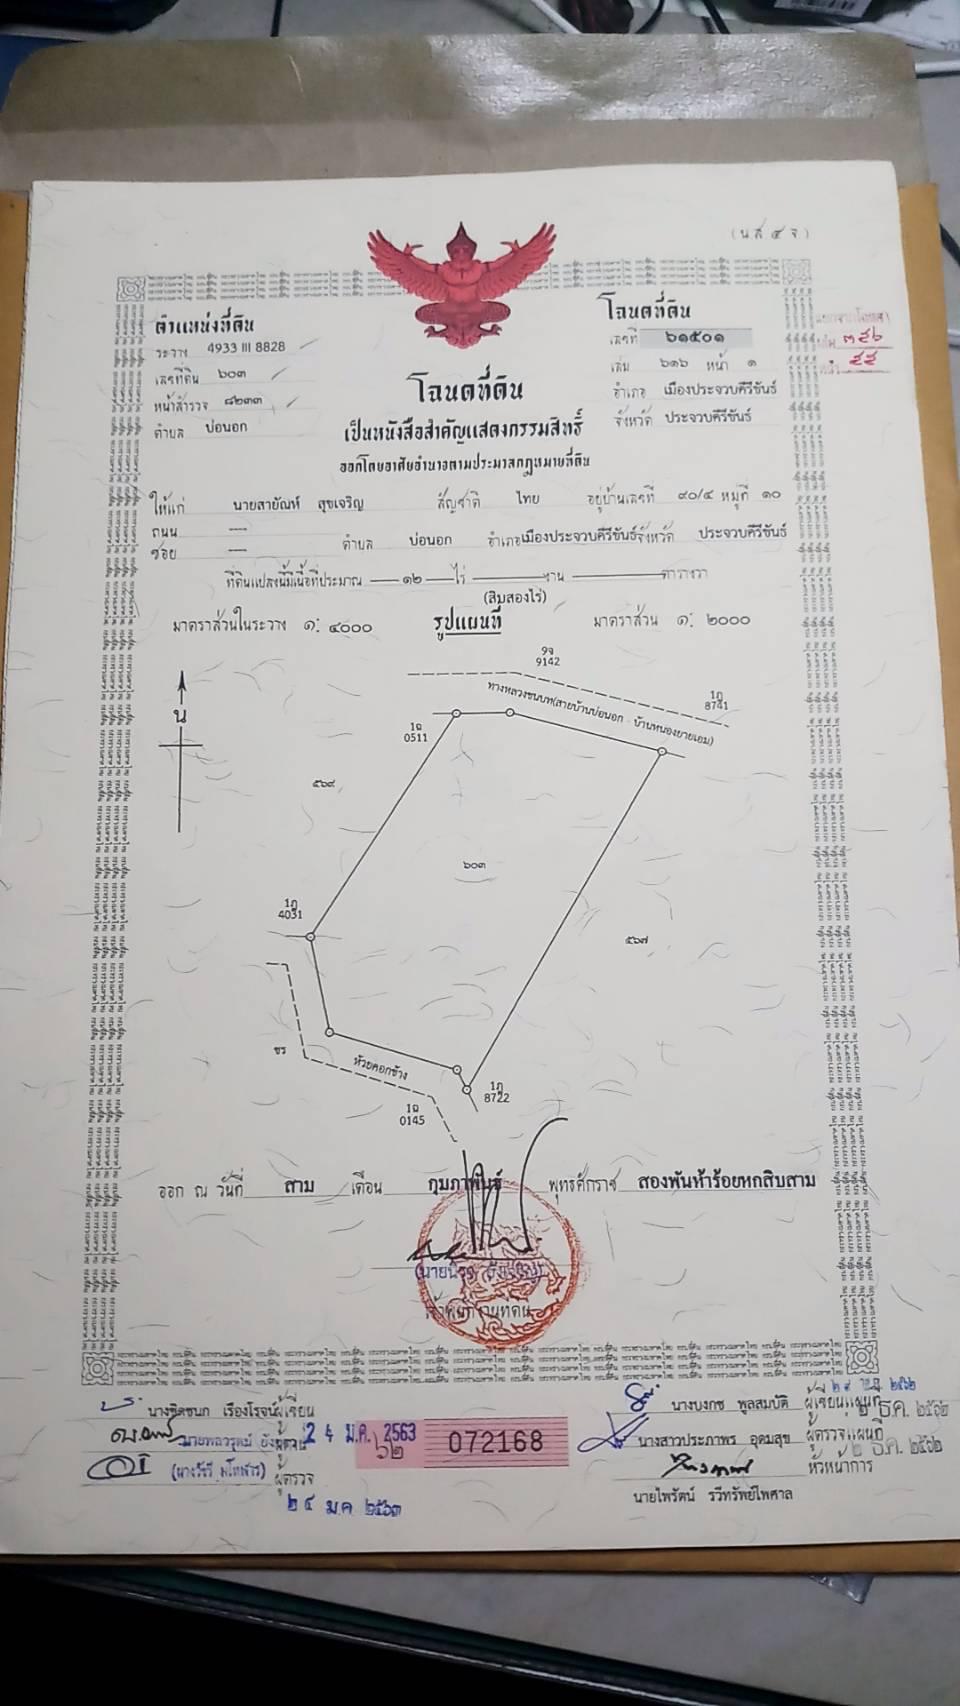 (น.ส. ๔ จ)
ตำแหน่งที่ดิน
ระวาง 4933 III 8828
เลขที่ดิน ๖๐๓
หน้าสำรวจ ๘๒๓๓
ตำบล บ่อนอก
โฉนดที่ดิน
เลขที่ ๖๑๕๐๑
เล่ม ๖๑๖ หน้า ๑
อำเภอ เมืองประจวบคีรีขันธ์
จังหวัด ประจวบคีรีขันธ์
๓๕๖
๕๕
โฉนดที่ดิน
เป็นหนังสือสำคัญแสดงกรรมสิทธิ์
ออกโดยอาศัยอำนาจตามประมวลกฎหมายที่ดิน
ให้แก่ นายสายัณห์ สุขเจริญ สัญชาติ ไทย อยู่บ้านเลขที่ ๙๐/๔ หมู่ที่ ๑๐
ถนน ---
ซอย --- ตำบล บ่อนอก อำเภอเมืองประจวบคีรีขันธ์จังหวัด ประจวบคีรีขันธ์
ที่ดินแปลงนี้มีเนื้อที่ประมาณ ๑๒ ไร่ งาน ตารางวา
(สิบสองไร่)
มาตราส่วนในระวาง ๑: ๔๐๐๐ รูปแผนที่ มาตราส่วน ๑: ๒๐๐๐
9จ
9142
ทางหลวงชนบท(สายบ้านบ่อนอก - บ้านหนองยายเอม)
1ฎ
8741
น
1ฉ
0511
๕๖๙
๖๐๓
1ฎ
4031
๕๖๗
ชร
ห้วยคอกช้าง
1ฎ
8722
1ฉ
0145
ออก ณ วันที่ สาม เดือน กุมภาพันธ์ พุทธศักราช สองพันห้าร้อยหกสิบสาม
เจ้าพนักงานที่ดิน
นางชิดชนก เรืองโรจน์ ผู้เขียน
24 ม.ค. 2563
ผู้ตรวจ
๒๔ ม.ค ๒๕๖๓
๖๒
072168
นางบงกช พูลสมบัติ ผู้เขียนแผนที่
นางสาวประภาพร อุดมสุข ผู้ตรวจแผนที่
หัวหน้าการ
นายไพรัตน์ รวีทรัพย์ไพศาล